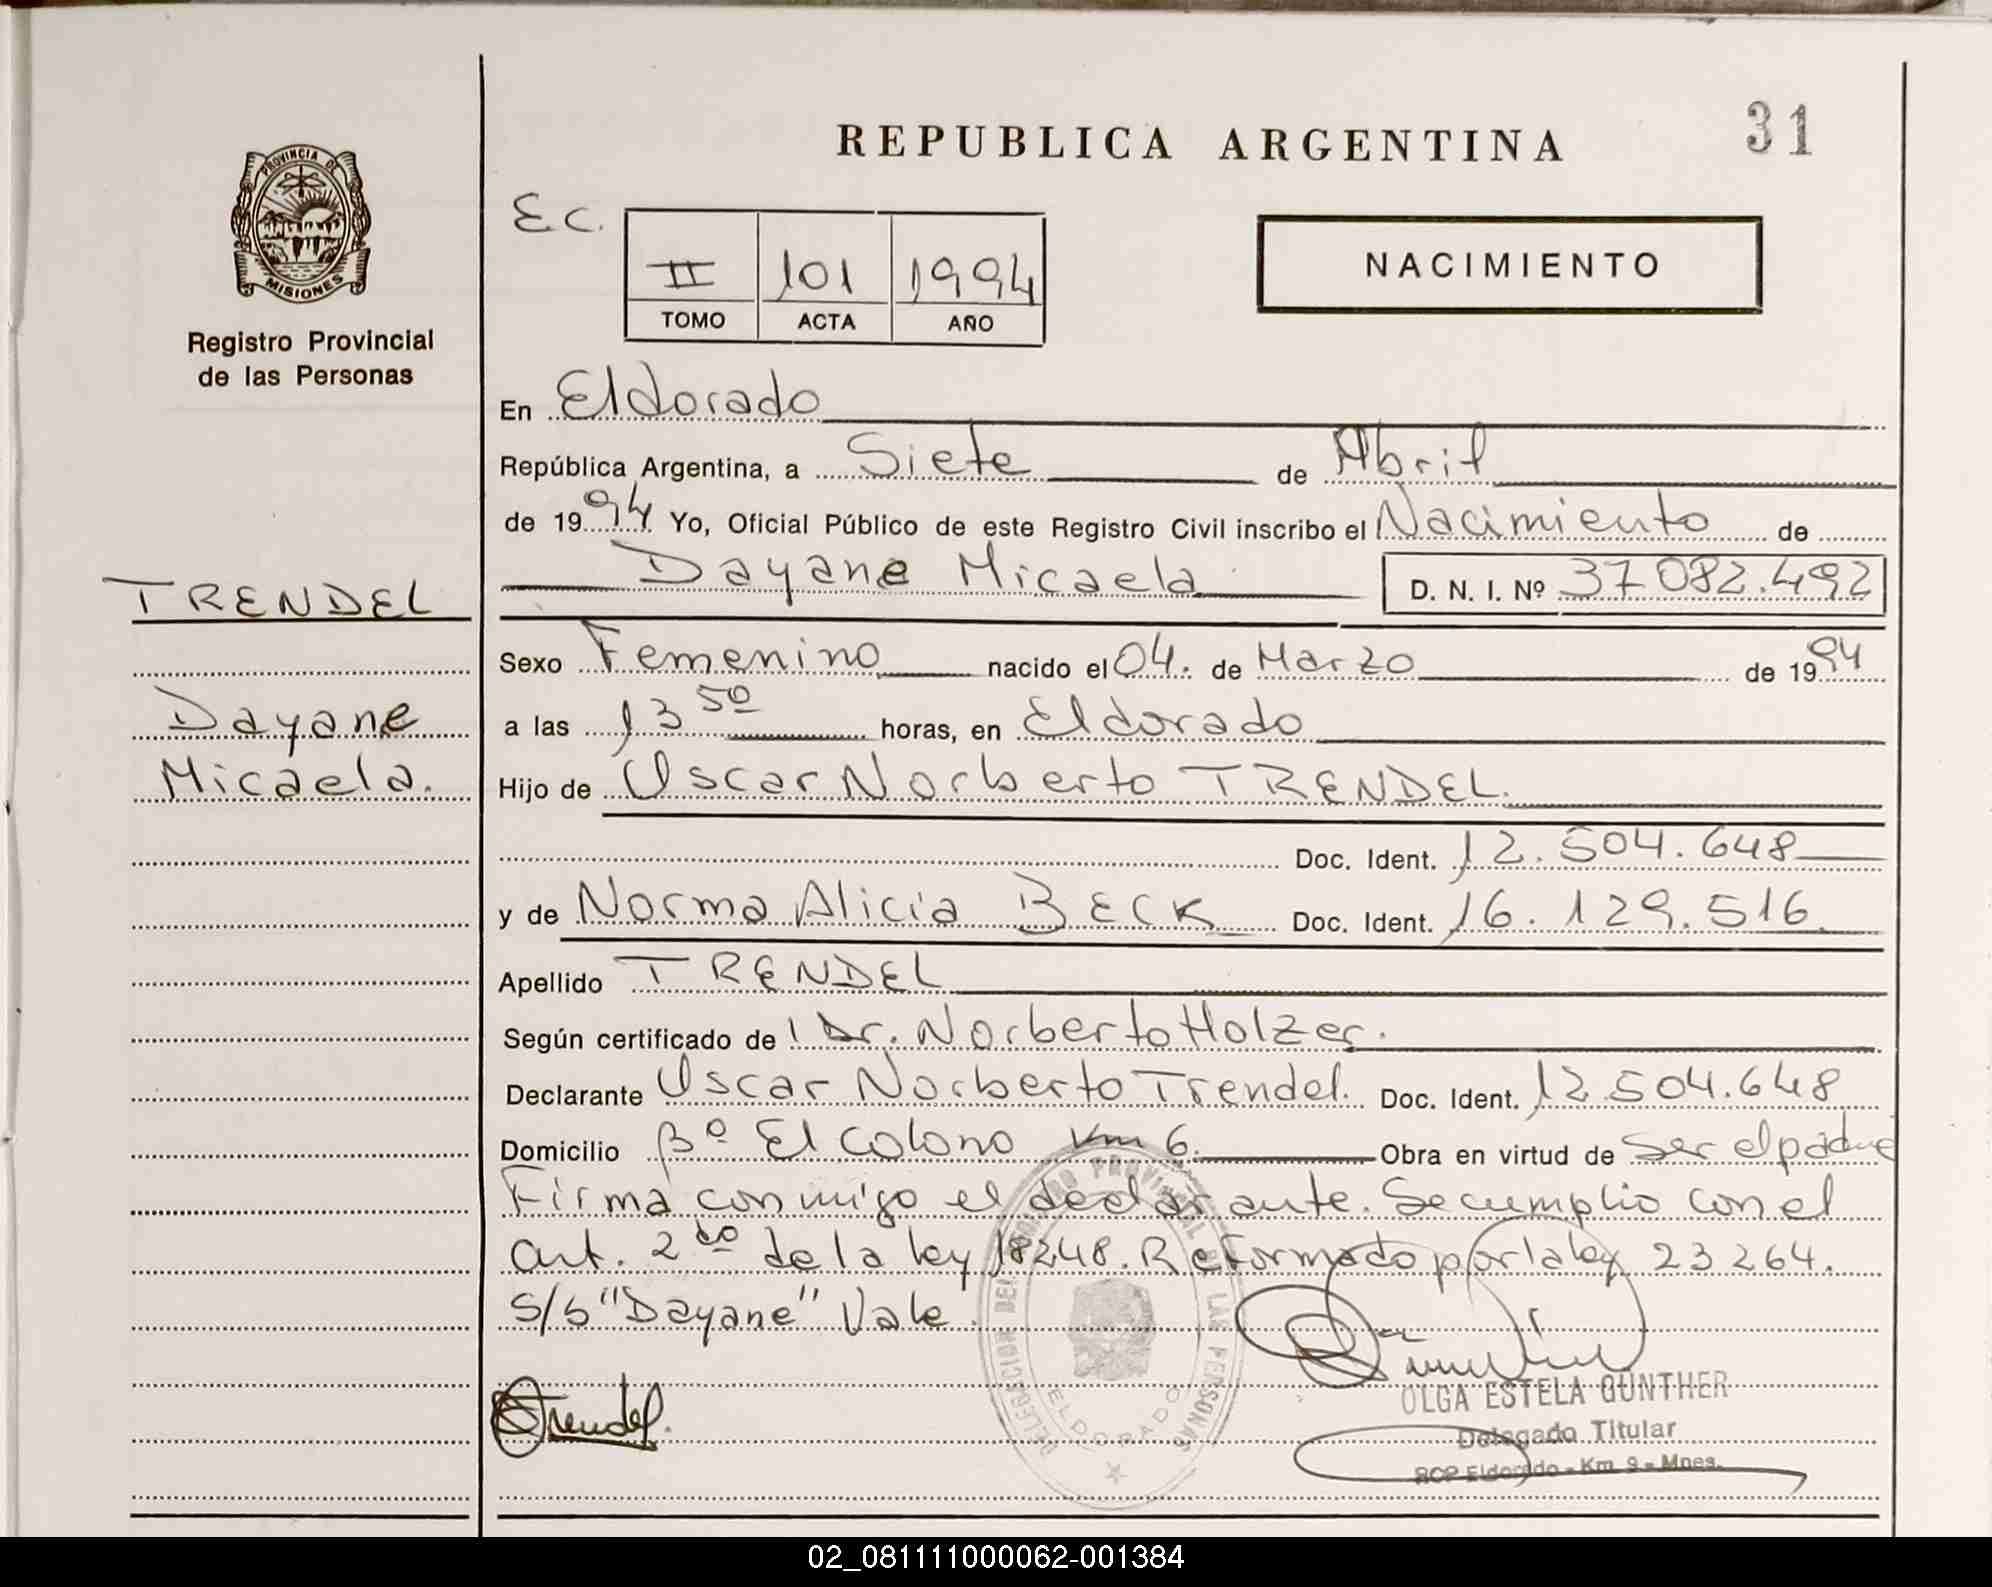 REPUBLICA ARGENTINA
31
PROVINCIA DE
MISIONES
Registro Provincial
de las Personas
E.C.
II 101 1994
TOMO ACTA AÑO
NACIMIENTO
En Eldorado
República Argentina, a Siete de Abril
de 1994 Yo, Oficial Público de este Registro Civil inscribo el Nacimiento de
Dayane Micaela D. N. I. Nº 37082.492
TRENDEL
Dayane
Micaela.
Sexo Femenino nacido el 04. de Marzo de 1994
a las 13 50 horas, en Eldorado
Hijo de Oscar Norberto TRENDEL.
Doc. Ident. 12.504.648
y de Norma Alicia BECK Doc. Ident. 16.129.516
Apellido TRENDEL
Según certificado de Dr. Norberto Holzer.
Declarante Oscar Norberto Trendel. Doc. Ident. 12.504.648
Domicilio Bº El Colono Km 6. Obra en virtud de Ser el padre
Firma conmigo el declarante. Se cumplio con el
art. 2do de la ley 18248. Reformado por la ley 23264.
S/b "Dayane" Vale.
DELEGACION DEL REGISTRO PROVINCIAL DE LAS PERSONAS
ELDORADO
Trendel.
OLGA ESTELA GUNTHER
Delegado Titular
RCP Eldorado - Km 9 - Mnes.
02_081111000062-001384